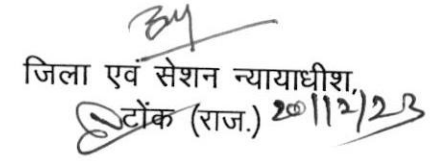 जिला एवं सेशन न्यायाधीश,
टोंक (राज.) 20/12/23